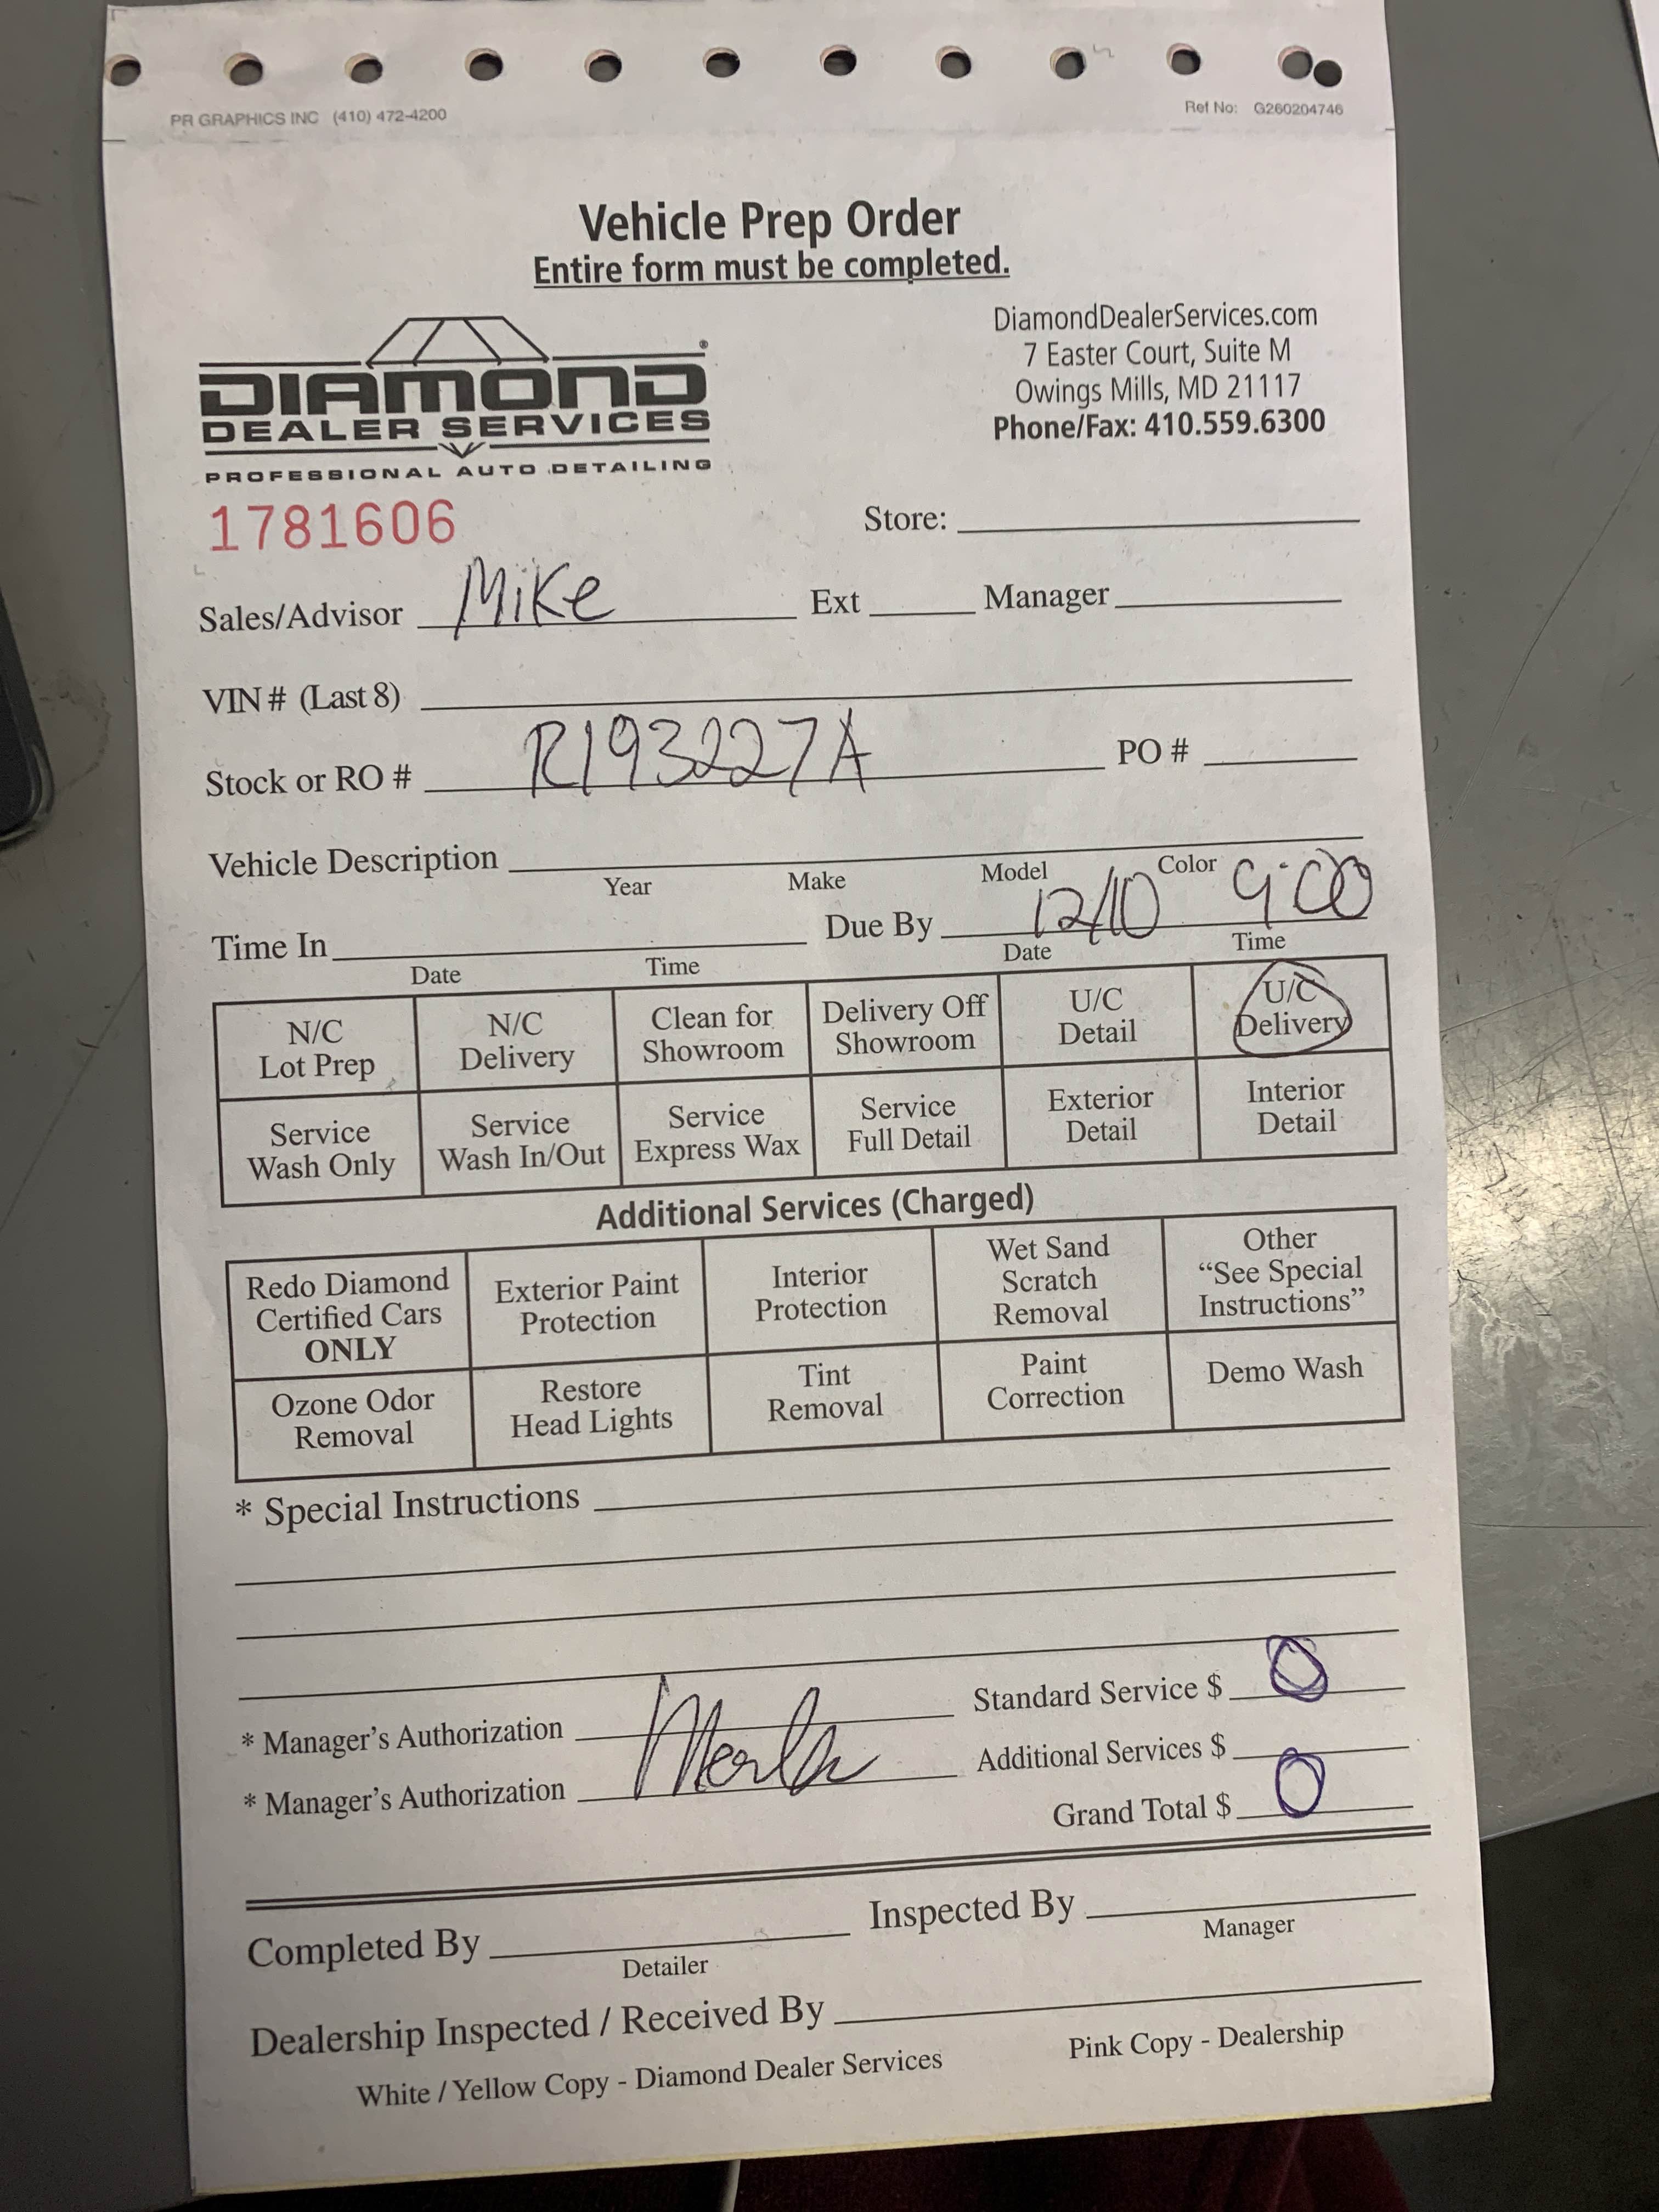 PR GRAPHICS INC (410) 472-4200 Ref No: G260204746
Vehicle Prep Order
Entire form must be completed.
DIAMOND
DEALER SERVICES
PROFESSIONAL AUTO DETAILING
DiamondDealerServices.com
7 Easter Court, Suite M
Owings Mills, MD 21117
Phone/Fax: 410.559.6300
1781606
Store:
Sales/Advisor Mike Ext Manager
VIN # (Last 8)
Stock or RO # R193227A PO #
Vehicle Description
Year Make Model Color
Time In Due By 12/10 9:00
Date Time Date Time
N/C Lot Prep
N/C Delivery
Clean for Showroom
Delivery Off Showroom
U/C Detail
U/C Delivery
Service Wash Only
Service Wash In/Out
Service Express Wax
Service Full Detail
Exterior Detail
Interior Detail
Additional Services (Charged)
Redo Diamond Certified Cars ONLY
Exterior Paint Protection
Interior Protection
Wet Sand Scratch Removal
Other “See Special Instructions”
Ozone Odor Removal
Restore Head Lights
Tint Removal
Paint Correction
Demo Wash
* Special Instructions
* Manager’s Authorization Standard Service $ 0
* Manager’s Authorization Additional Services $
Grand Total $ 0
Completed By Inspected By
Detailer Manager
Dealership Inspected / Received By
White / Yellow Copy - Diamond Dealer Services Pink Copy - Dealership